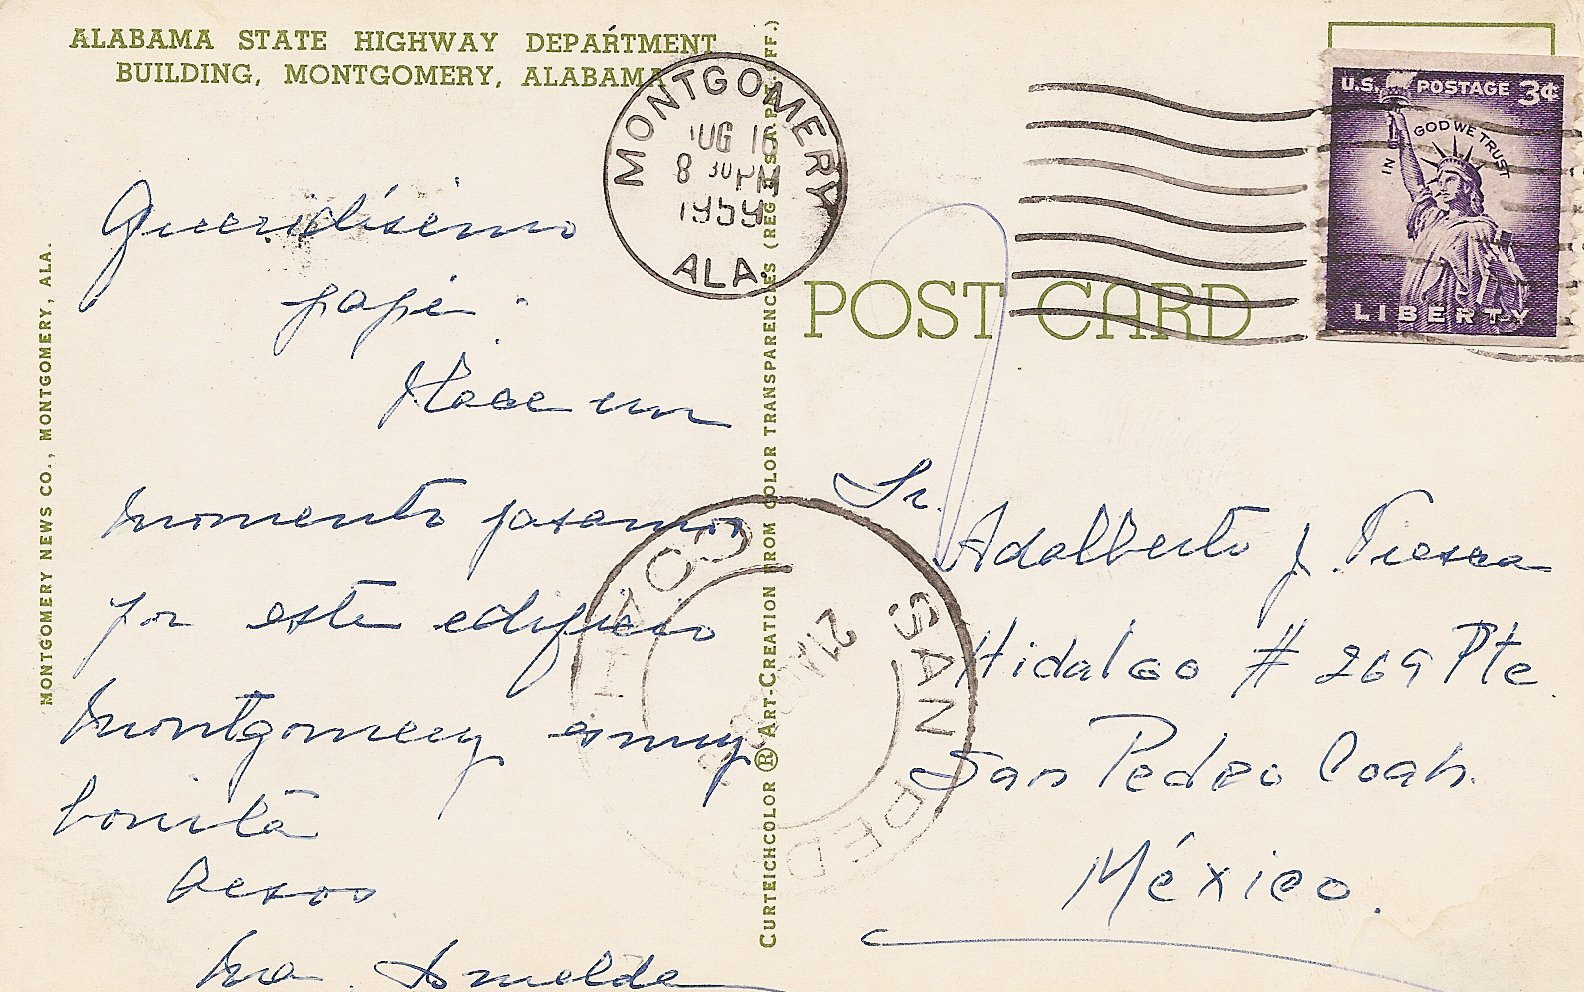 ALABAMA STATE HIGHWAY DEPARTMENT
BUILDING, MONTGOMERY, ALABAMA
MONTGOMERY NEWS CO., MONTGOMERY, ALA.
Queridísimo
papi:
Hace un
momento pasamos
por este edificio
Montgomery es muy
bonita
Besos
Ma. Imelda
MONTGOMERY
AUG 1
8 30 PM
1959
ALA.
CURTEICHCOLOR ® ART-CREATION FROM COLOR TRANSPARENCIES (REG. U.S.A. PAT. OFF.)
POST CARD
U.S. POSTAGE 3¢
IN GOD WE TRUST
LIBERTY
Sr.
Adalberto J. Viesca
Hidalgo # 269 Pte.
San Pedro Coah.
México.
SAN PEDRO
21